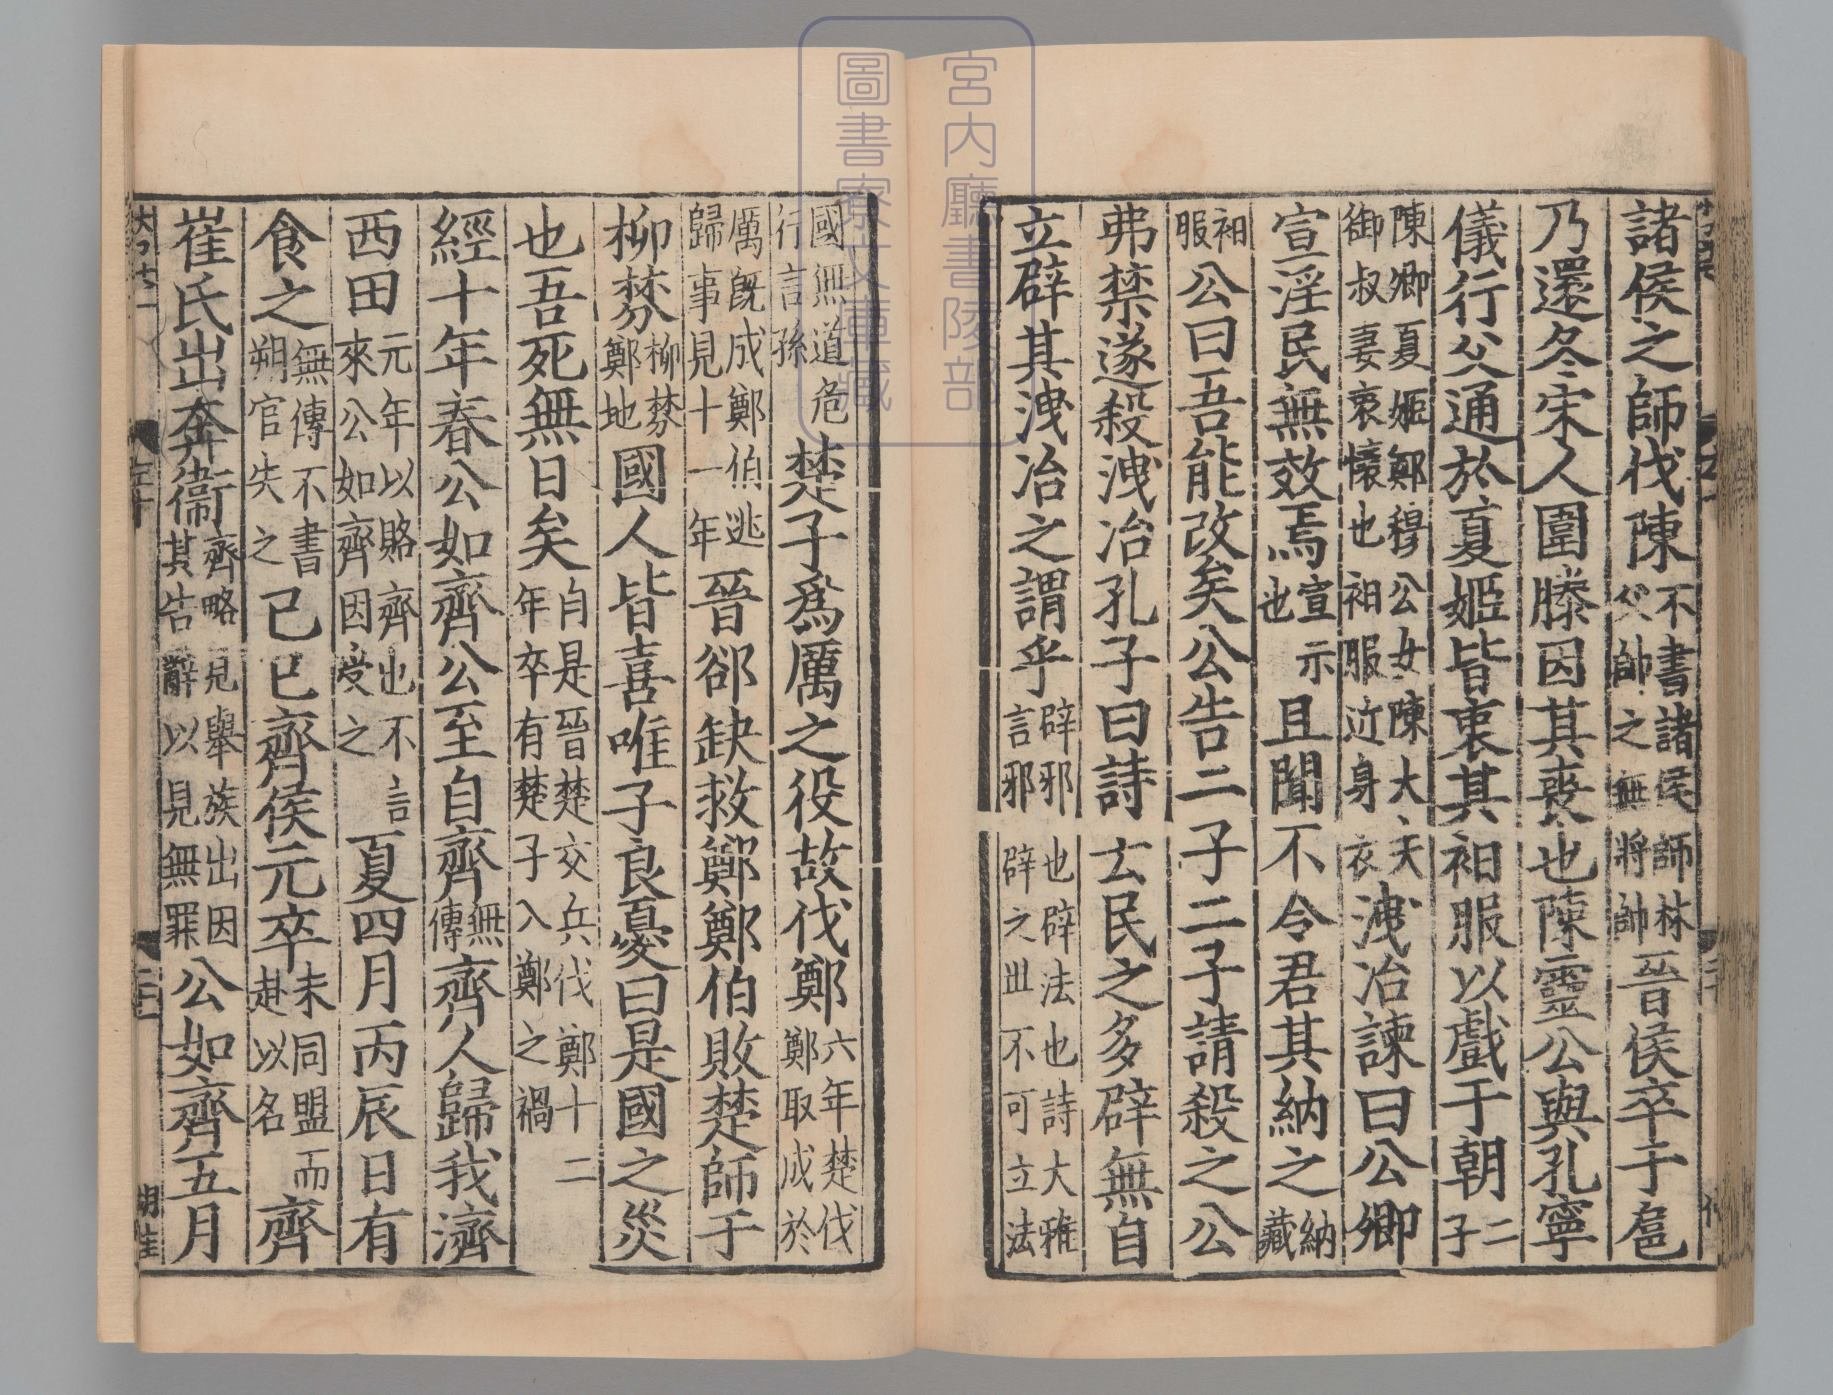 諸侯之師伐陳不書諸侯師林父帥之無將帥晉侯卒于扈
乃還冬宋人圍滕因其喪也陳靈公與孔寧
儀行父通於夏姬皆衷其衵服以戲于朝二子
陳卿夏姬鄭穆公女陳大夫御叔妻衷懷也衵服近身衣洩冶諫曰公卿
宣淫民無效焉宣示也且聞不令君其納之納藏
衵服公曰吾能改矣公告二子二子請殺之公
弗禁遂殺洩冶孔子曰詩云民之多辟無自
立辟其洩冶之謂乎辟邪也辟法也詩大雅言邪辟之世不可立法
國無道危行言孫楚子爲厲之役故伐鄭六年楚伐鄭取成於
厲既成鄭伯逃歸事見十一年晉郤缺救鄭鄭伯敗楚師于
柳棼柳棼鄭地國人皆喜唯子良憂曰是國之災
也吾死無日矣自是晉楚交兵伐鄭十二年卒有楚子入鄭之禍
經十年春公如齊公至自齊無傳齊人歸我濟
西田元年以賂齊也不言來公如齊因受之夏四月丙辰日有
食之無傳不書朔官失之己巳齊侯元卒未同盟而赴以名齊
崔氏出奔衞齊略見舉族出因其告辭以見無罪公如齊五月
宮内廳書陵部
圖書寮文庫藏